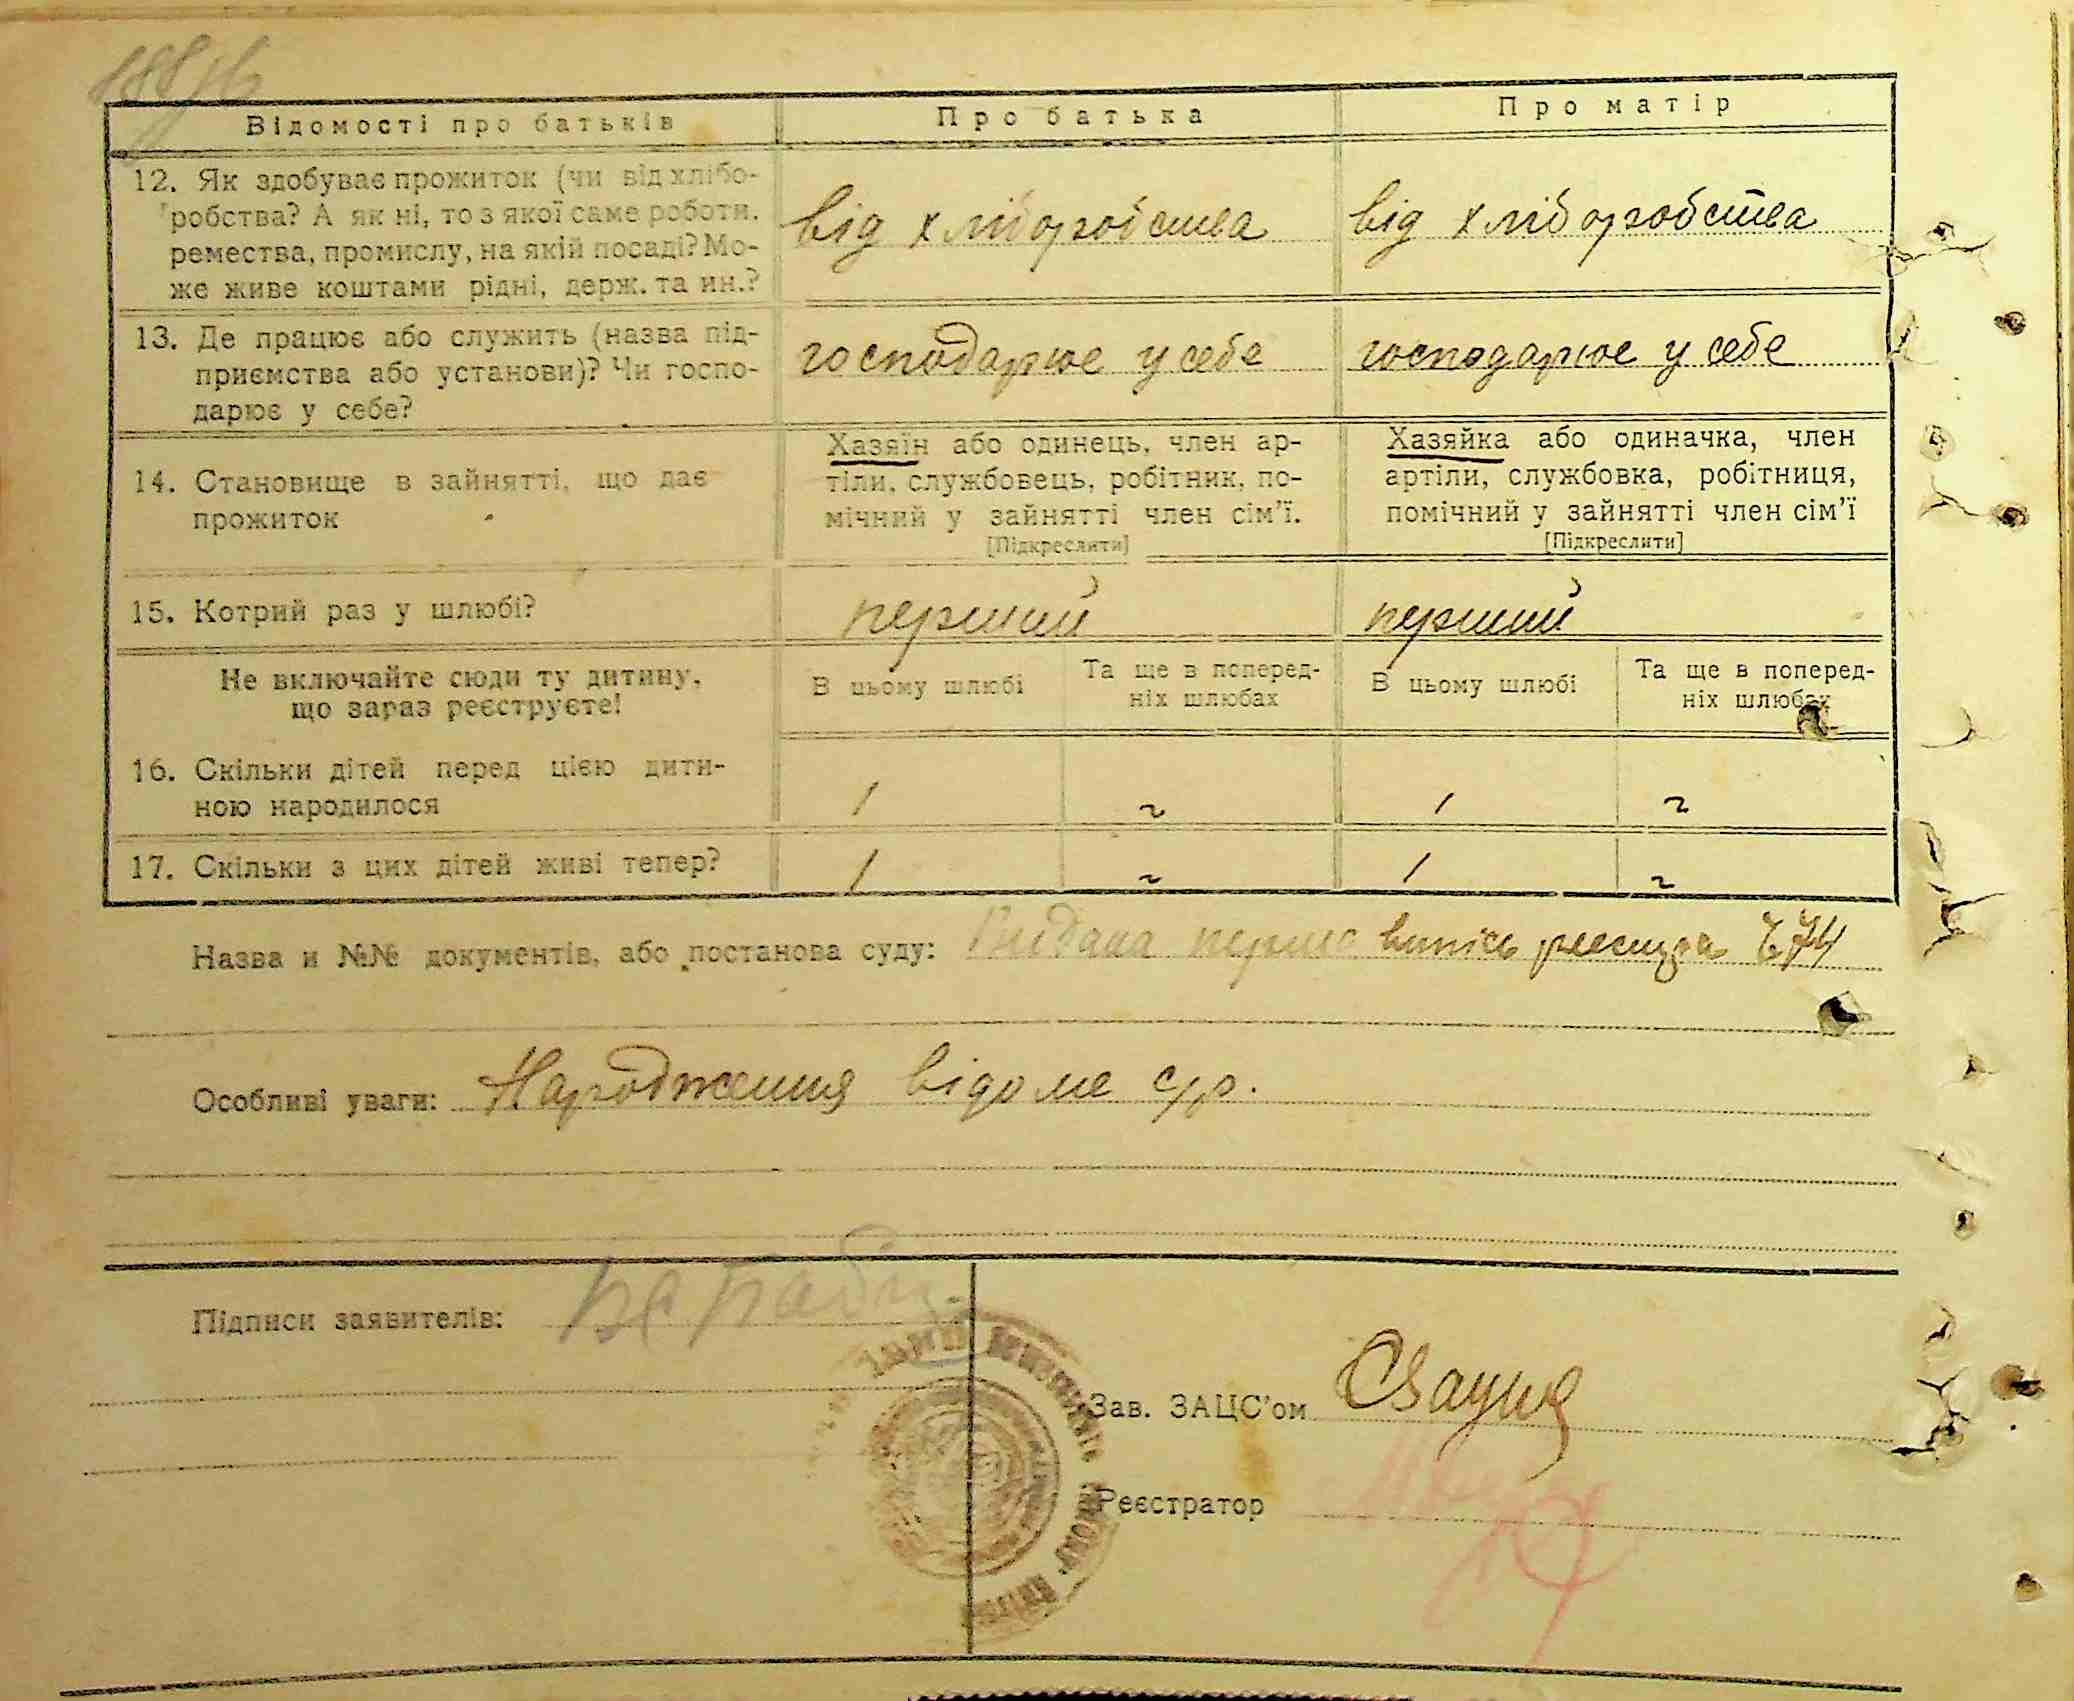 Відомості про батьків
Про батька
Про матір
12. Як здобуває прожиток (чи від хлібо-
робства? А як ні, то з якої саме роботи.
ремества, промислу, на якій посаді? Мо-
же живе коштами рідні, держ. та ин.?
від хліборобства
від хліборобства
13. Де працює або служить (назва під-
приємства або установи)? Чи госпо-
дарює у себе?
господарює у себе
господарює у себе
14. Становище в зайнятті, що дає
прожиток
Хазяїн або одинець, член ар-
тіли, службовець, робітник, по-
мічний у зайнятті член сім'ї.
[Підкреслити]
Хазяйка або одиначка, член
артіли, службовка, робітниця,
помічний у зайнятті член сім'ї
[Підкреслити]
15. Котрий раз у шлюбі?
перший
перший
Не включайте сюди ту дитину,
що зараз реєструєте!
В цьому шлюбі
Та ще в поперед-
ніх шлюбах
В цьому шлюбі
Та ще в поперед-
ніх шлюбах
16. Скільки дітей перед цією дити-
ною народилося
1
1
17. Скільки з цих дітей живі тепер?
1
1
Назва и №№ документів, або постанова суду: Видана перша випісь реєстра 74
Особливі уваги: Народження відоме с/р.
Підписи заявителів:
Зав. ЗАЦС'ом
Реєстратор